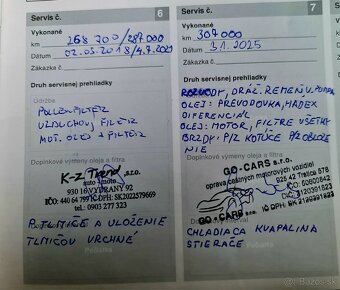 Servis č. 6
Vykonané
km 268 700/287000
Dátum 02.05.2018/4.7.2021
Zákazka č.
Druh servisnej prehliadky
Údržba
POLLENFILTER
VZDUCHOVÝ FILTER
MOT. OLEJ + FILTER
Doplnkové výmeny oleja a filtra
K-Z Trend s.r.o.
auto moto
930 16 VYDRANY 92
IČO: 440 64 799 IČ DPH: SK2022579669
tel.: 0903 277 323
P. TLMIČE A ULOŽENIE
TLMIČOV VRCHNÉ
Pečiatka
Servis č. 7
Vykonané
km 307000
Dátum 3.1.2025
Zákazka č.
Druh servisnej prehliadky
ROZVODY, DRÁŽ. REMEŇ, V. PUMPA
OLEJ: PREVODOVKA, HALDEX
DIFERENCIÁL
OLEJ: MOTOR, FILTRE VŠETKY
BRZDY: P/Z KOTÚČE + OBLOŽE
NIE
Doplnkové výmeny oleja a filtra
GO-CARS s.r.o.
oprava cestných motorových vozidiel
925 42 Trstice 578
GO-CARS s.r.o.
CHLADIACA KVAPALINA
STIERAČE
Pečiatka